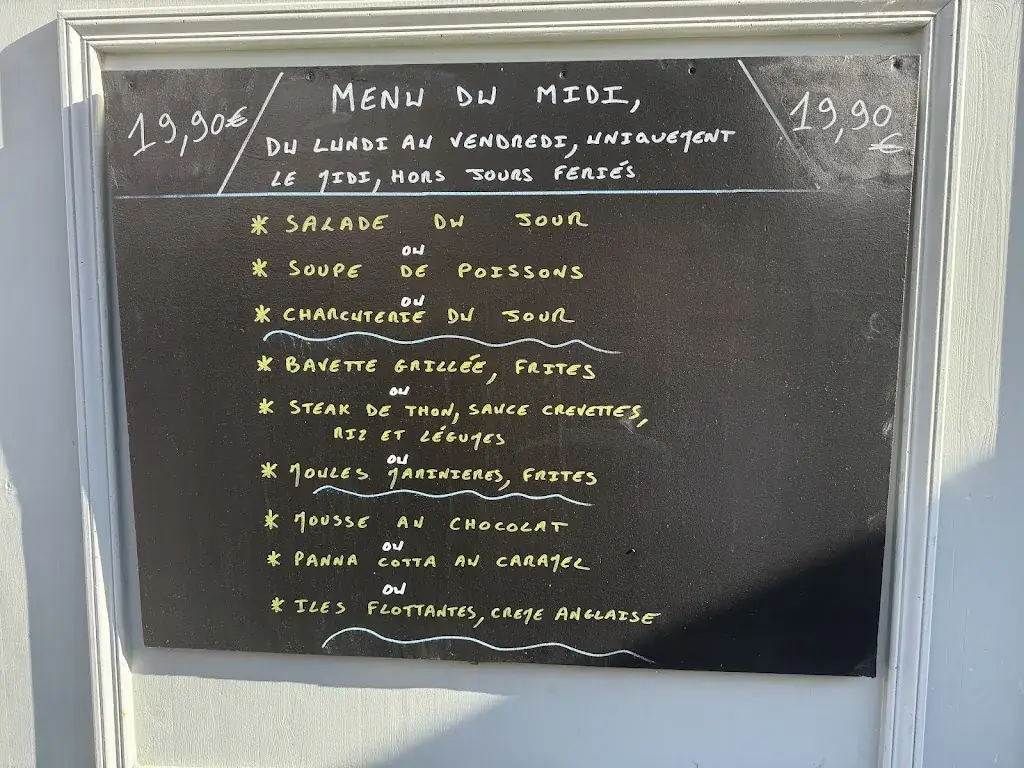 19,90€
MENU DU MIDI,
19,90
€
DU LUNDI AU VENDREDI, UNIQUEMENT
LE MIDI, HORS JOURS FERIÉS
* SALADE DU JOUR
OU
* SOUPE DE POISSONS
OU
* CHARCUTERIE DU JOUR
* BAVETTE GRILLÉE, FRITES
OU
* STEAK DE THON, SAUCE CREVETTES,
RIZ ET LÉGUMES
OU
* MOULES MARINIERES, FRITES
* MOUSSE AU CHOCOLAT
OU
* PANNA COTTA AU CARAMEL
OU
* ILES FLOTTANTES, CREME ANGLAISE